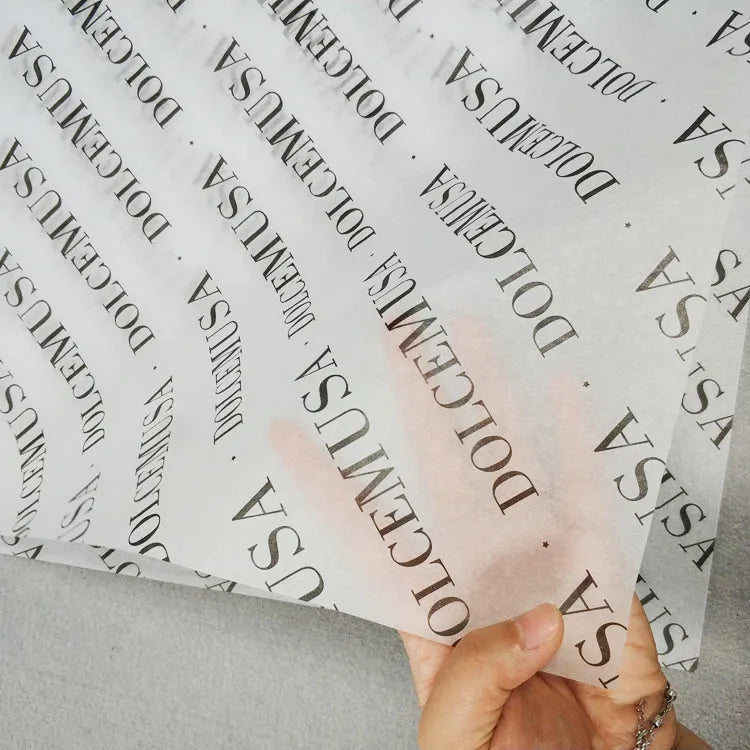 DOLCEMUSA
DOLCEMUSA
DOLCEMUSA
DOLCEMUSA
DOLCEMUSA
DOLCEMUSA
DOLCEMUSA
DOLCEMUSA
DOLCEMUSA
DOLCEMUSA
DOLCEMUSA
DOLCEMUSA
DOLCEMUSA
DOLCEMUSA
USA
USA
USA